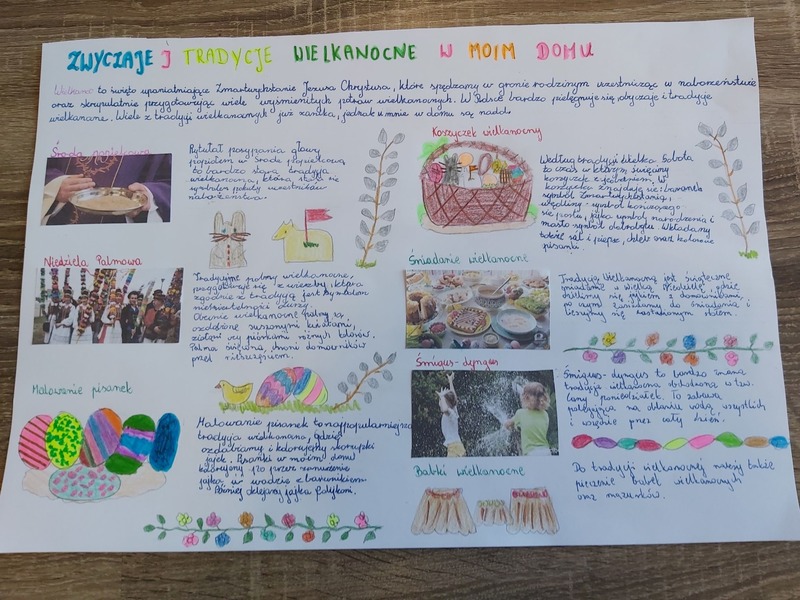 ZWYCZAJE I TRADYCJE WIELKANOCNE W MOIM DOMU
Wielkanoc to święto upamiętniające Zmartwychstanie Jezusa Chrystusa, które spędzamy w gronie rodzinnym uczestnicząc w nabożeństwie
oraz skrupulatnie przygotowując wiele wyśmienitych potraw wielkanocnych. W Polsce bardzo pielęgnuje się obyczaje i tradycje
wielkanocne. Wiele z tradycji wielkanocnych już zanikła, jednak u mnie w domu są nadal:
Środa popielcowa
Rytuał posypania głowy
popiołem w Środę popielcową
to bardzo stara tradycja
wielkanocna, która stała się
symbolem pokuty uczestników
nabożeństwa.
Koszyczek wielkanocny
Według tradycji Wielka Sobota
to czas w którym święcimy
koszyczek z jedzeniem. W
koszyczku znajdują się: baranek
symbol Zmartwychwstania,
wędliny - symbol kończącego
się postu, jajka symbol narodzenia i
masło symbol dobrobytu. Wkładamy
także sól i pieprz, chleb oraz kolorowe
pisanki.
Niedziela Palmowa
Tradycyjne palmy wielkanocne,
przygotowuje się z wierzby, która
zgodnie z tradycją jest symbolem
nieśmiertelności duszy.
Obecnie wielkanocne palmy są
ozdobione suszonymi kwiatami,
ziołami czy piórkami różnych kolorów.
Palma święcona, chroni domowników
przed nieszczęściem.
Śniadanie wielkanocne
Tradycją Wielkanocną jest świąteczne
śniadanie w Wielką Niedzielę, gdzie
dzielimy się jajkiem z domownikami,
po czym zasiadamy do śniadania i
cieszymy się zastawionym stołem.
Malowanie pisanek
Malowanie pisanek to najpopularniejsza
tradycja wielkanocna, gdzie
ozdabiamy i kolorujemy skorupki
jajek. Pisanki w moim domu
kolorujemy po przez zanurzenie
jajka, w wodzie z barwnikiem
Później oklejamy jajka folijkami.
Śmigus-dyngus
Śmigus-dyngus to bardzo znana
tradycja wielkanocna obchodzona w tzw.
lany poniedziałek. To zabawa
polegająca na oblaniu wodą wszystkich
i wszędzie przez cały dzień.
Babki wielkanocne
Do tradycji wielkanocnej należy także
pieczenie babek wielkanocnych
oraz mazurków.